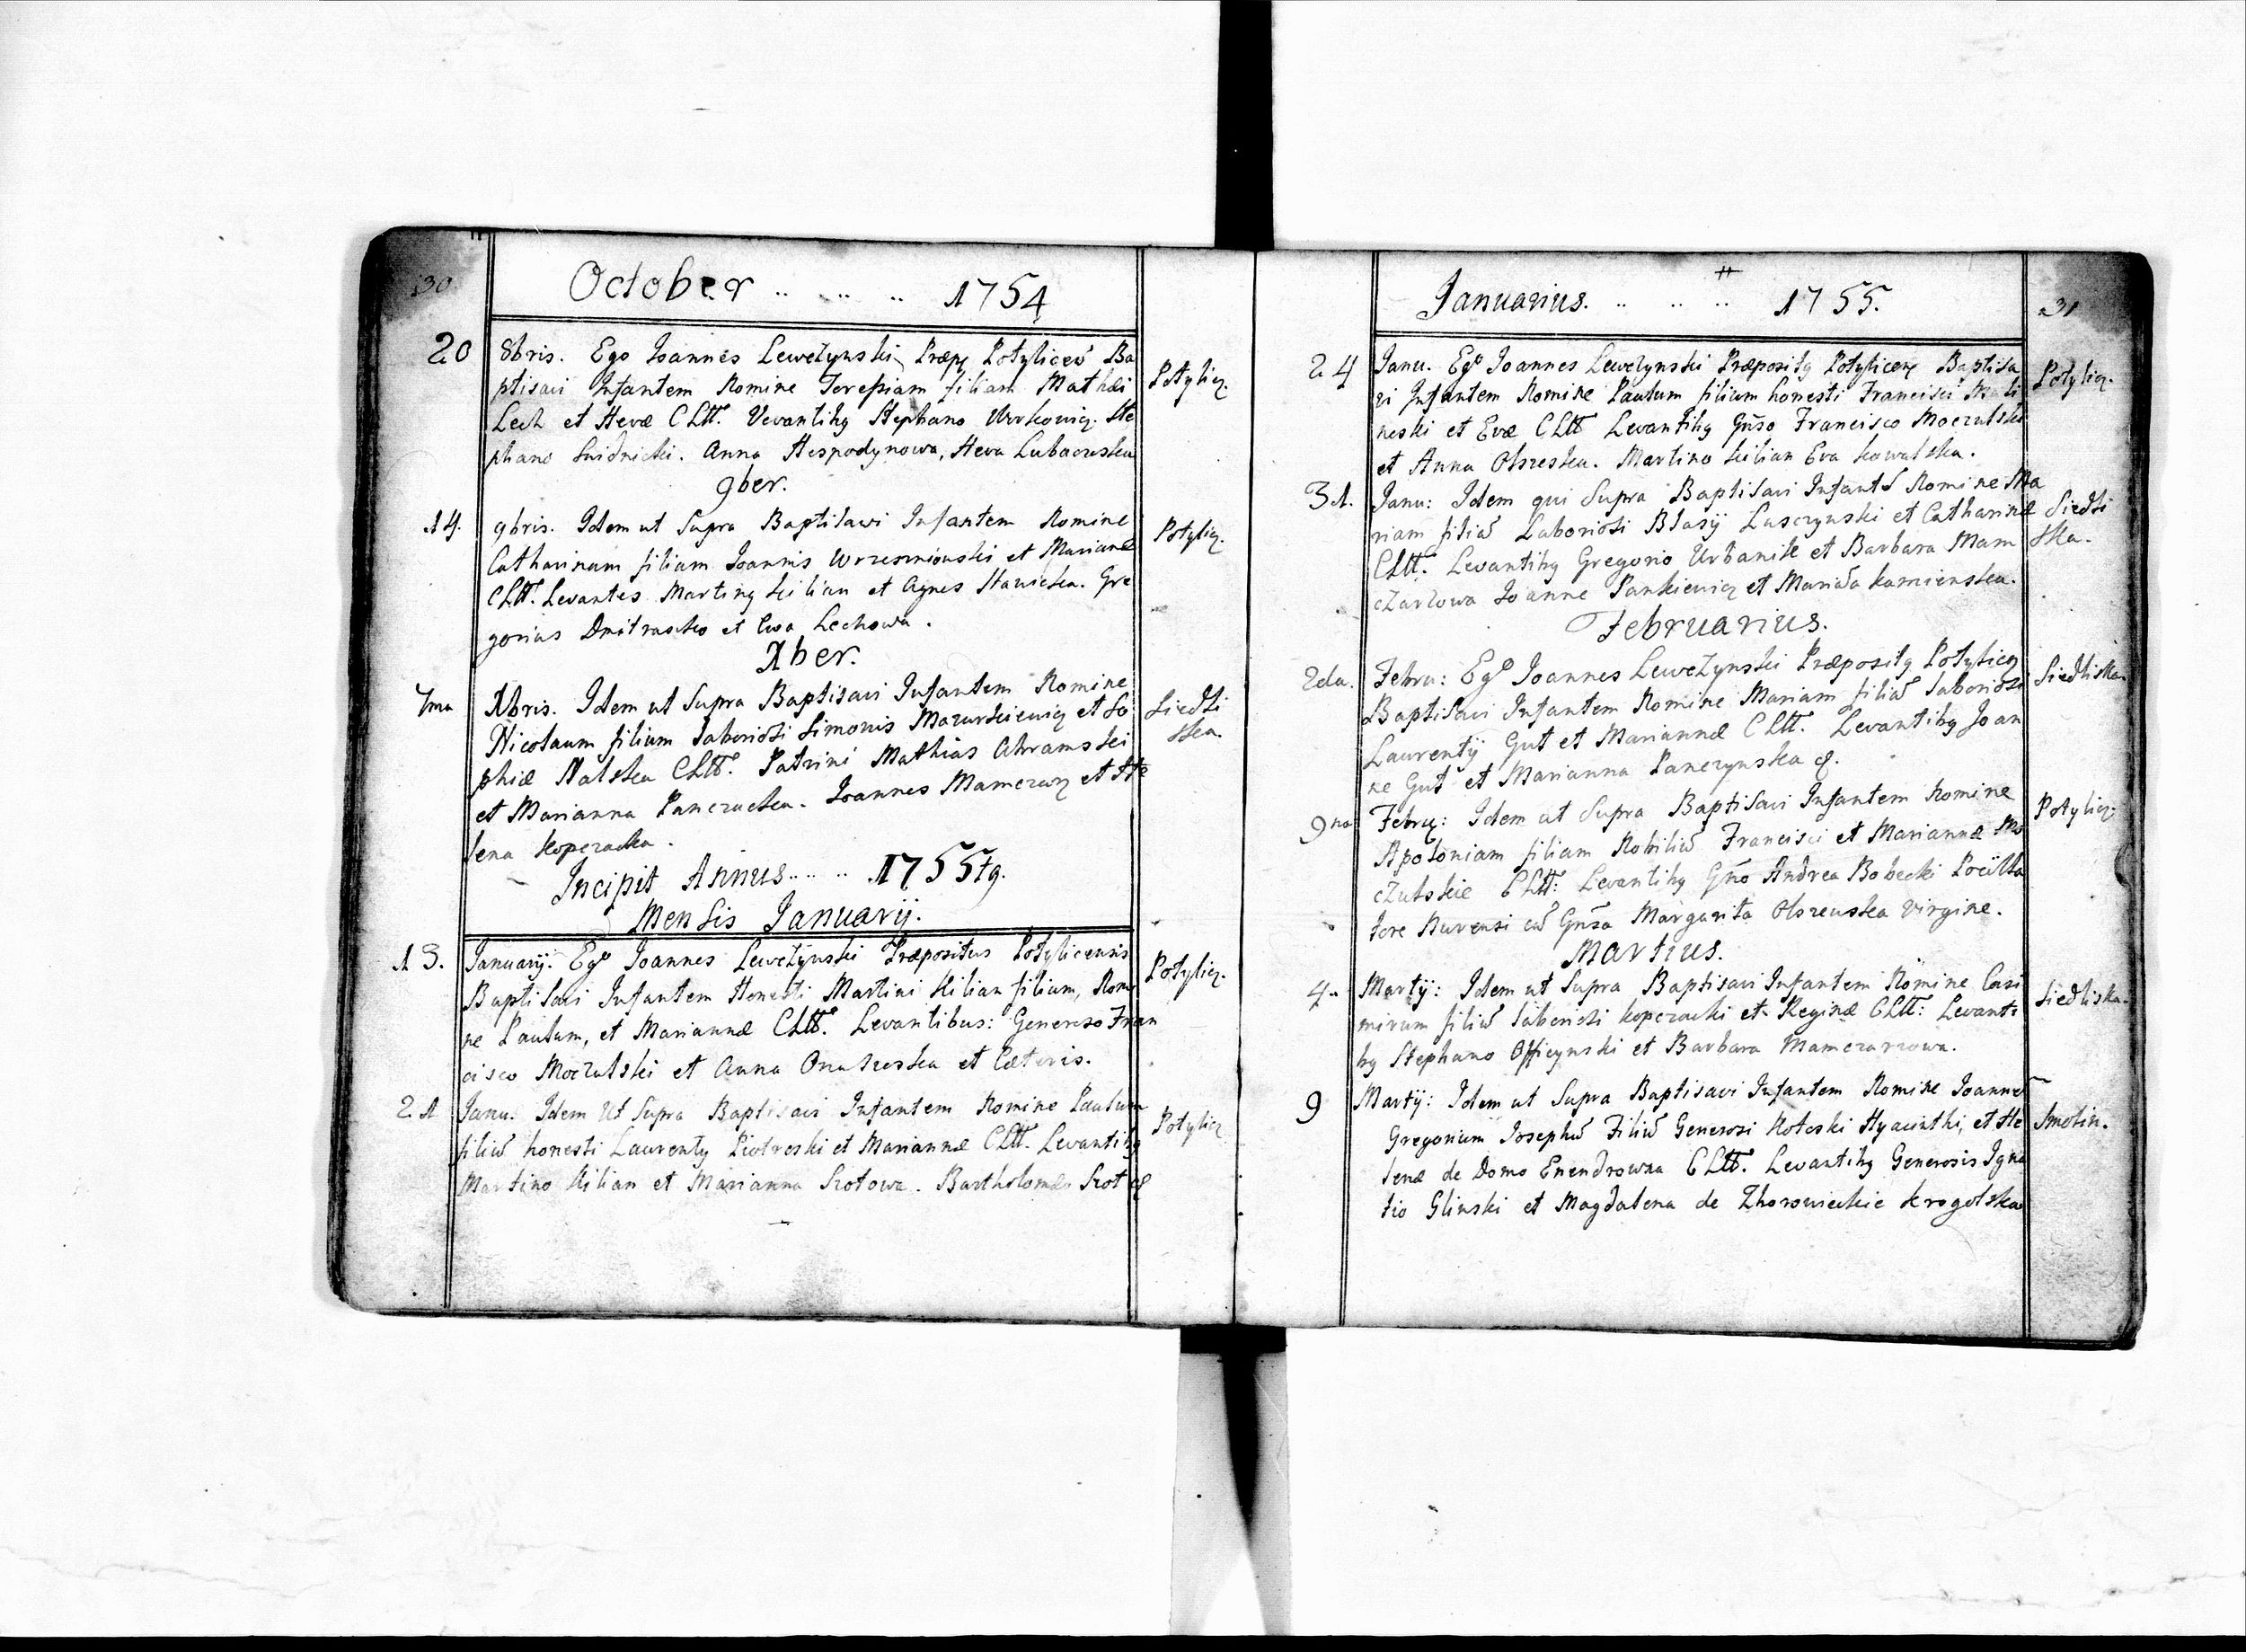 30
October .. .. .. 1754
20 8bris. Ego Joannes Lewczynski Præpq Potylicen̄ Ba
ptisavi Infantem Nomine Teressiam filiam Mathæi Potylicz.
Lech et Hevæ CLtt. Vevantibq Stephano Workowicz. Ste
phano Swidnicki. Anna Hospodynowa, Heva Lubaczewska
9ber.
14. 9bris. Idem ut Supra Baptisavi Infantem Nomine Potylicz.
Catharinam filiam Joannis Wrzesniowski et Mariannæ
CLtt. Levantes Martinq Kilian et Agnes Stawicka. Gre
gorius Dmitraszko et Ewa Lechowa.
Xber.
7ma Xbris. Idem ut Supra Baptisavi Infantem Nomine Siedli
Nicolaum filium Laboriosi Simonis Mazurkiewicz et So ska
phiæ Nalska CLtt. Patrini Mathias Abramski
et Marianna Panczucka. Joannes Mamczarz et He
lena Kopczacka.
Incipit Annus .. .. .. 1755tq.
Mensis Januarij.
13. Januarij. Ego Joannes Lewczynski Præpositus Potylicensis Potylicz.
Baptisavi Infantem Honesti Martini Kilian filium, Nomi
ne Paulum, et Mariannæ CLtt. Levantibus: Generoso Fran
cisco Moczulski et Anna Onu et Cæteris.
21 Janu. Idem Ut Supra Baptisavi Infantem Nomine Paulum Potylicz
filiū honesti Laurenty Piotroski et Mariannæ CLtt. Levantibq
Martino Kilian et Marianna Szotowa. Bartholomæo Szot &
Januarius. .. .. .. 1755. 31
24 Janu. Ego Joannes Lewczynski Præpositq Potylicenq Baptisa Potylicz.
vi Infantem Nomine Paulum filium honesti Francisci Mali
neski et Evæ CLtt Levantibq Gn̄so Francisco Moczulski
et Anna Olszeska. Martino Kilian Eva Kowalska.
31. Janu: Idem qui Supra Baptisavi Infantē Nomine Ma
riam filiā Laboriosi Blasij Lusczynski et Catharinæ Siedli
CLtt. Levantibq Gregorio Urbanik et Barbara Mam ska.
czarzowa Joanne Pankiewicz et Mariāa Kamienska.
Februarius.
2da. Febru: Ego Joannes Lewczynski Præpositq Potylicz Siedliska
Baptisavi Infantem Nomine Mariam filiā Laboriosi
Laurentij Gut et Mariannæ CLtt. Levantibq Joan
ne Gut et Marianna Panczynska &.
9na Febrq: Idem ut Supra Baptisavi Infantem Nomine Potylicz
Apoloniam filiam Nobiliū Francisci et Mariannæ Mo
czulskie CLtt: Levantibq Gn̄o Andrea Bobecki
tore Nurensi cū Gn̄sa Margarita Olszewska Virgine.
Martius.
4. Martij: Idem ut Supra Baptisavi Infantem Nomine Casi Siedliska.
mirum filiū Laboriosi Kopczacki et Reginæ CLtt: Levanti
bq Stephano Officynski et Barbara Mamczarzowa.
9 Martij: Idem ut Supra Baptisavi Infantem Nomine Joannē
Gregorium Josephū Filiū Generosi Koteski Hyacinthi, et He Smolin.
lenæ de Domo CLtt. Levantibq Generosis Igna
tio Glinski et Magdalena de Krogulska